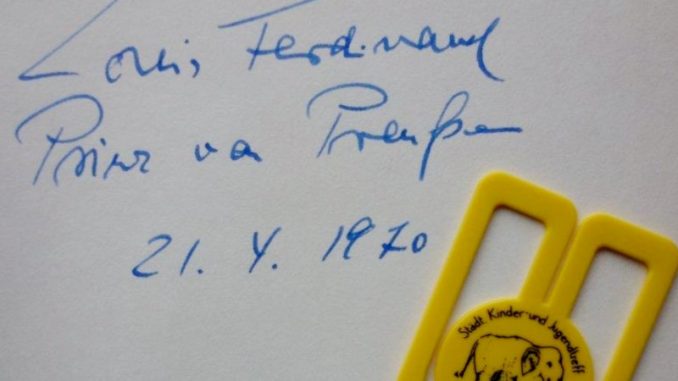 Louis Ferdinand
Prinz von Preußen
21. 4. 1970
Städt. Kinder- und Jugendtreff